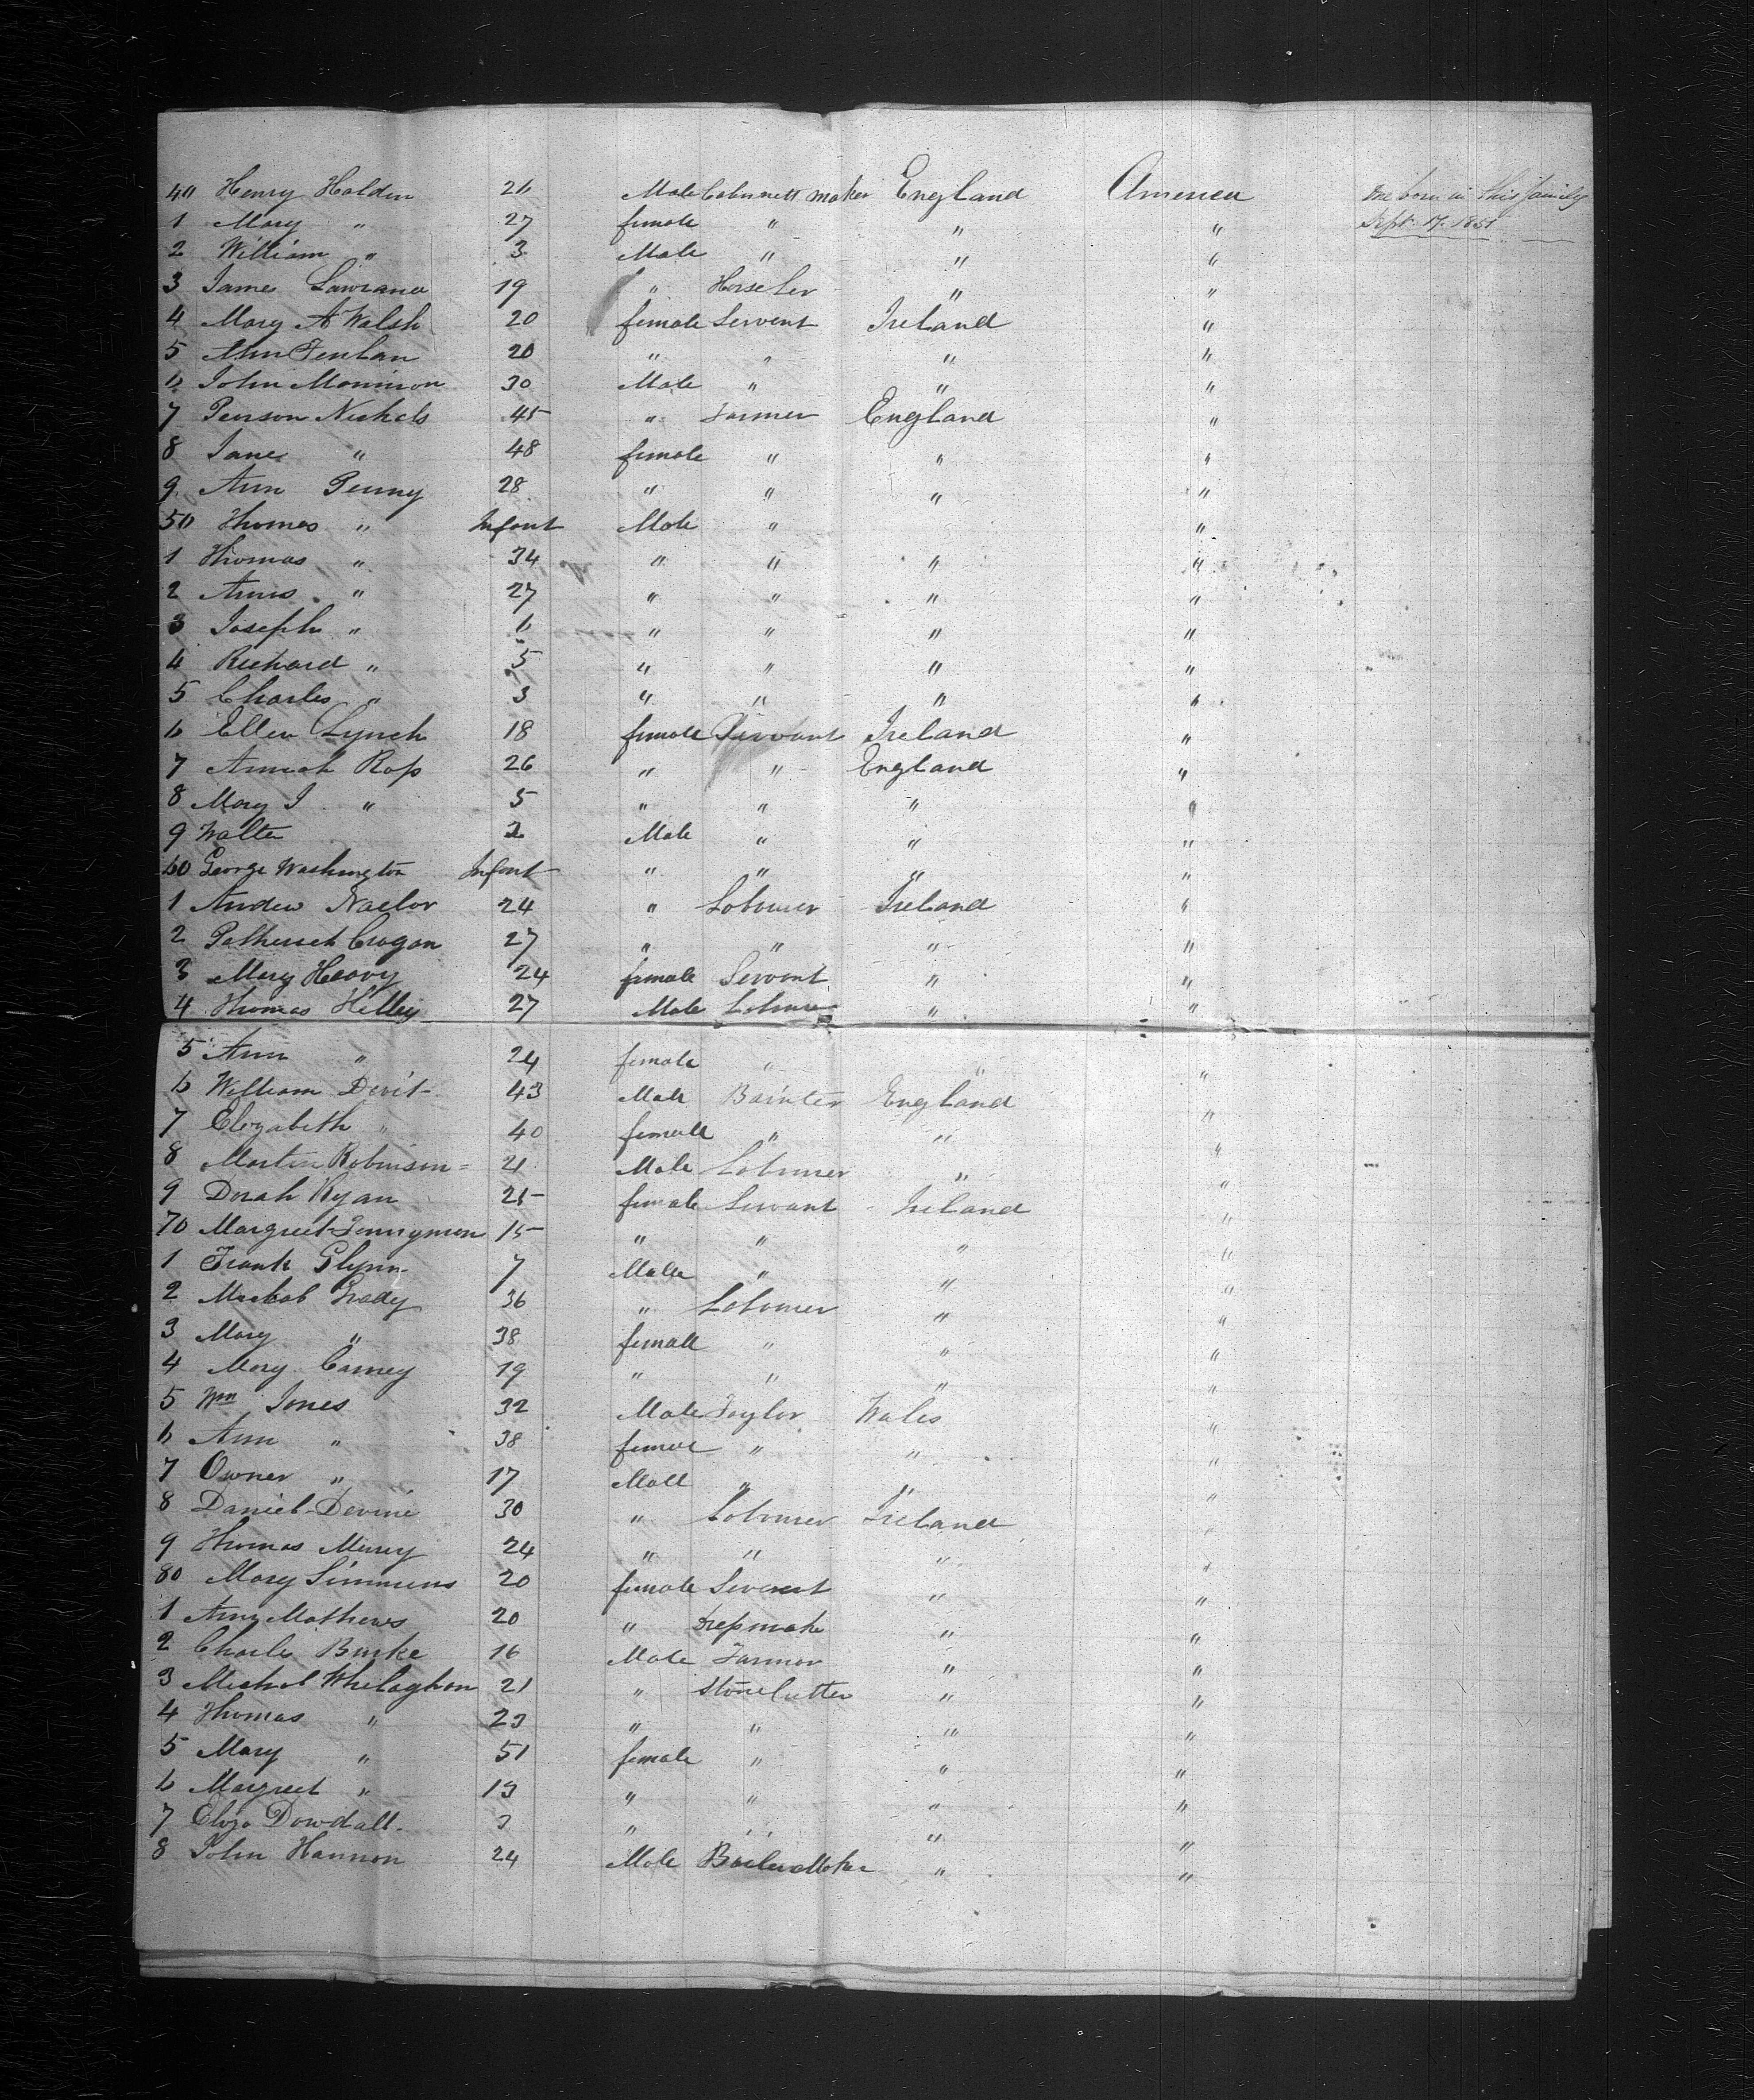 40 Henry Holden 26 Male Cabinett maker England America One born in this family
1 Mary " 27 female " " " Sept. 17. 1851
2 William " 3 Male " " "
3 James Lawrance 19 " " "
4 Mary A Walsh 20 female Servent Ireland "
5 Ann Fenlan 20 " " " "
6 John Morrison 30 Male " " "
7 Pearson Nichels 45 " Farmer England "
8 Jane " 48 female " " "
9 Ann Penny 28 " " " "
50 Thomas " Infant Male " "
1 Thomas " 34 " " " "
2 Annis " 27 " " " "
3 Joseph " 6 " " " "
4 Richard " 5 " " " "
5 Charles " 3 " " " "
6 Ellen Lynch 18 female Servant Ireland "
7 Annah Ross 26 " " England "
8 Mary J " 5 " " " "
9 Walter 2 Male " " "
60 George Washington Infant " " " "
1 Andew Naelor 24 " Labourer Ireland "
2 Crogan 27 " " " "
3 Mary Heavy 24 female Servent " "
4 Thomas Helley 27 Male Labourer " "
5 Ann " 24 female " " "
6 William Devit 43 Male Bainter England "
7 Elizabeth " 40 female " " "
8 Martin Robinson 21 Male Labourer " "
9 Dorah Ryan 25 female Servant Ireland "
70 Margreet 15 " " " "
1 Frank Glynn 7 Male " " "
2 Grady 36 " Labourer " "
3 Mary " 38 female " " "
4 Mary Carney 19 " " " "
5 Wm Jones 32 Male Taylor Wales "
6 Ann " 38 female " " "
7 Owner " 17 Male " " "
8 Daniel Devine 30 " Labourer Ireland "
9 Thomas Murey 24 " " " "
80 Mary Simmens 20 female Servent " "
1 Ann Mathews 20 " Dressmake " "
2 Charles Burke 16 Male Farmor " "
3 Whelaghon 21 " Stone Cutter " "
4 Thomas " 23 " " " "
5 Mary " 51 female " " "
6 Margreet " 13 " " " "
7 Eliza Dowdall 3 " " " "
8 John Hannon 24 Male " "